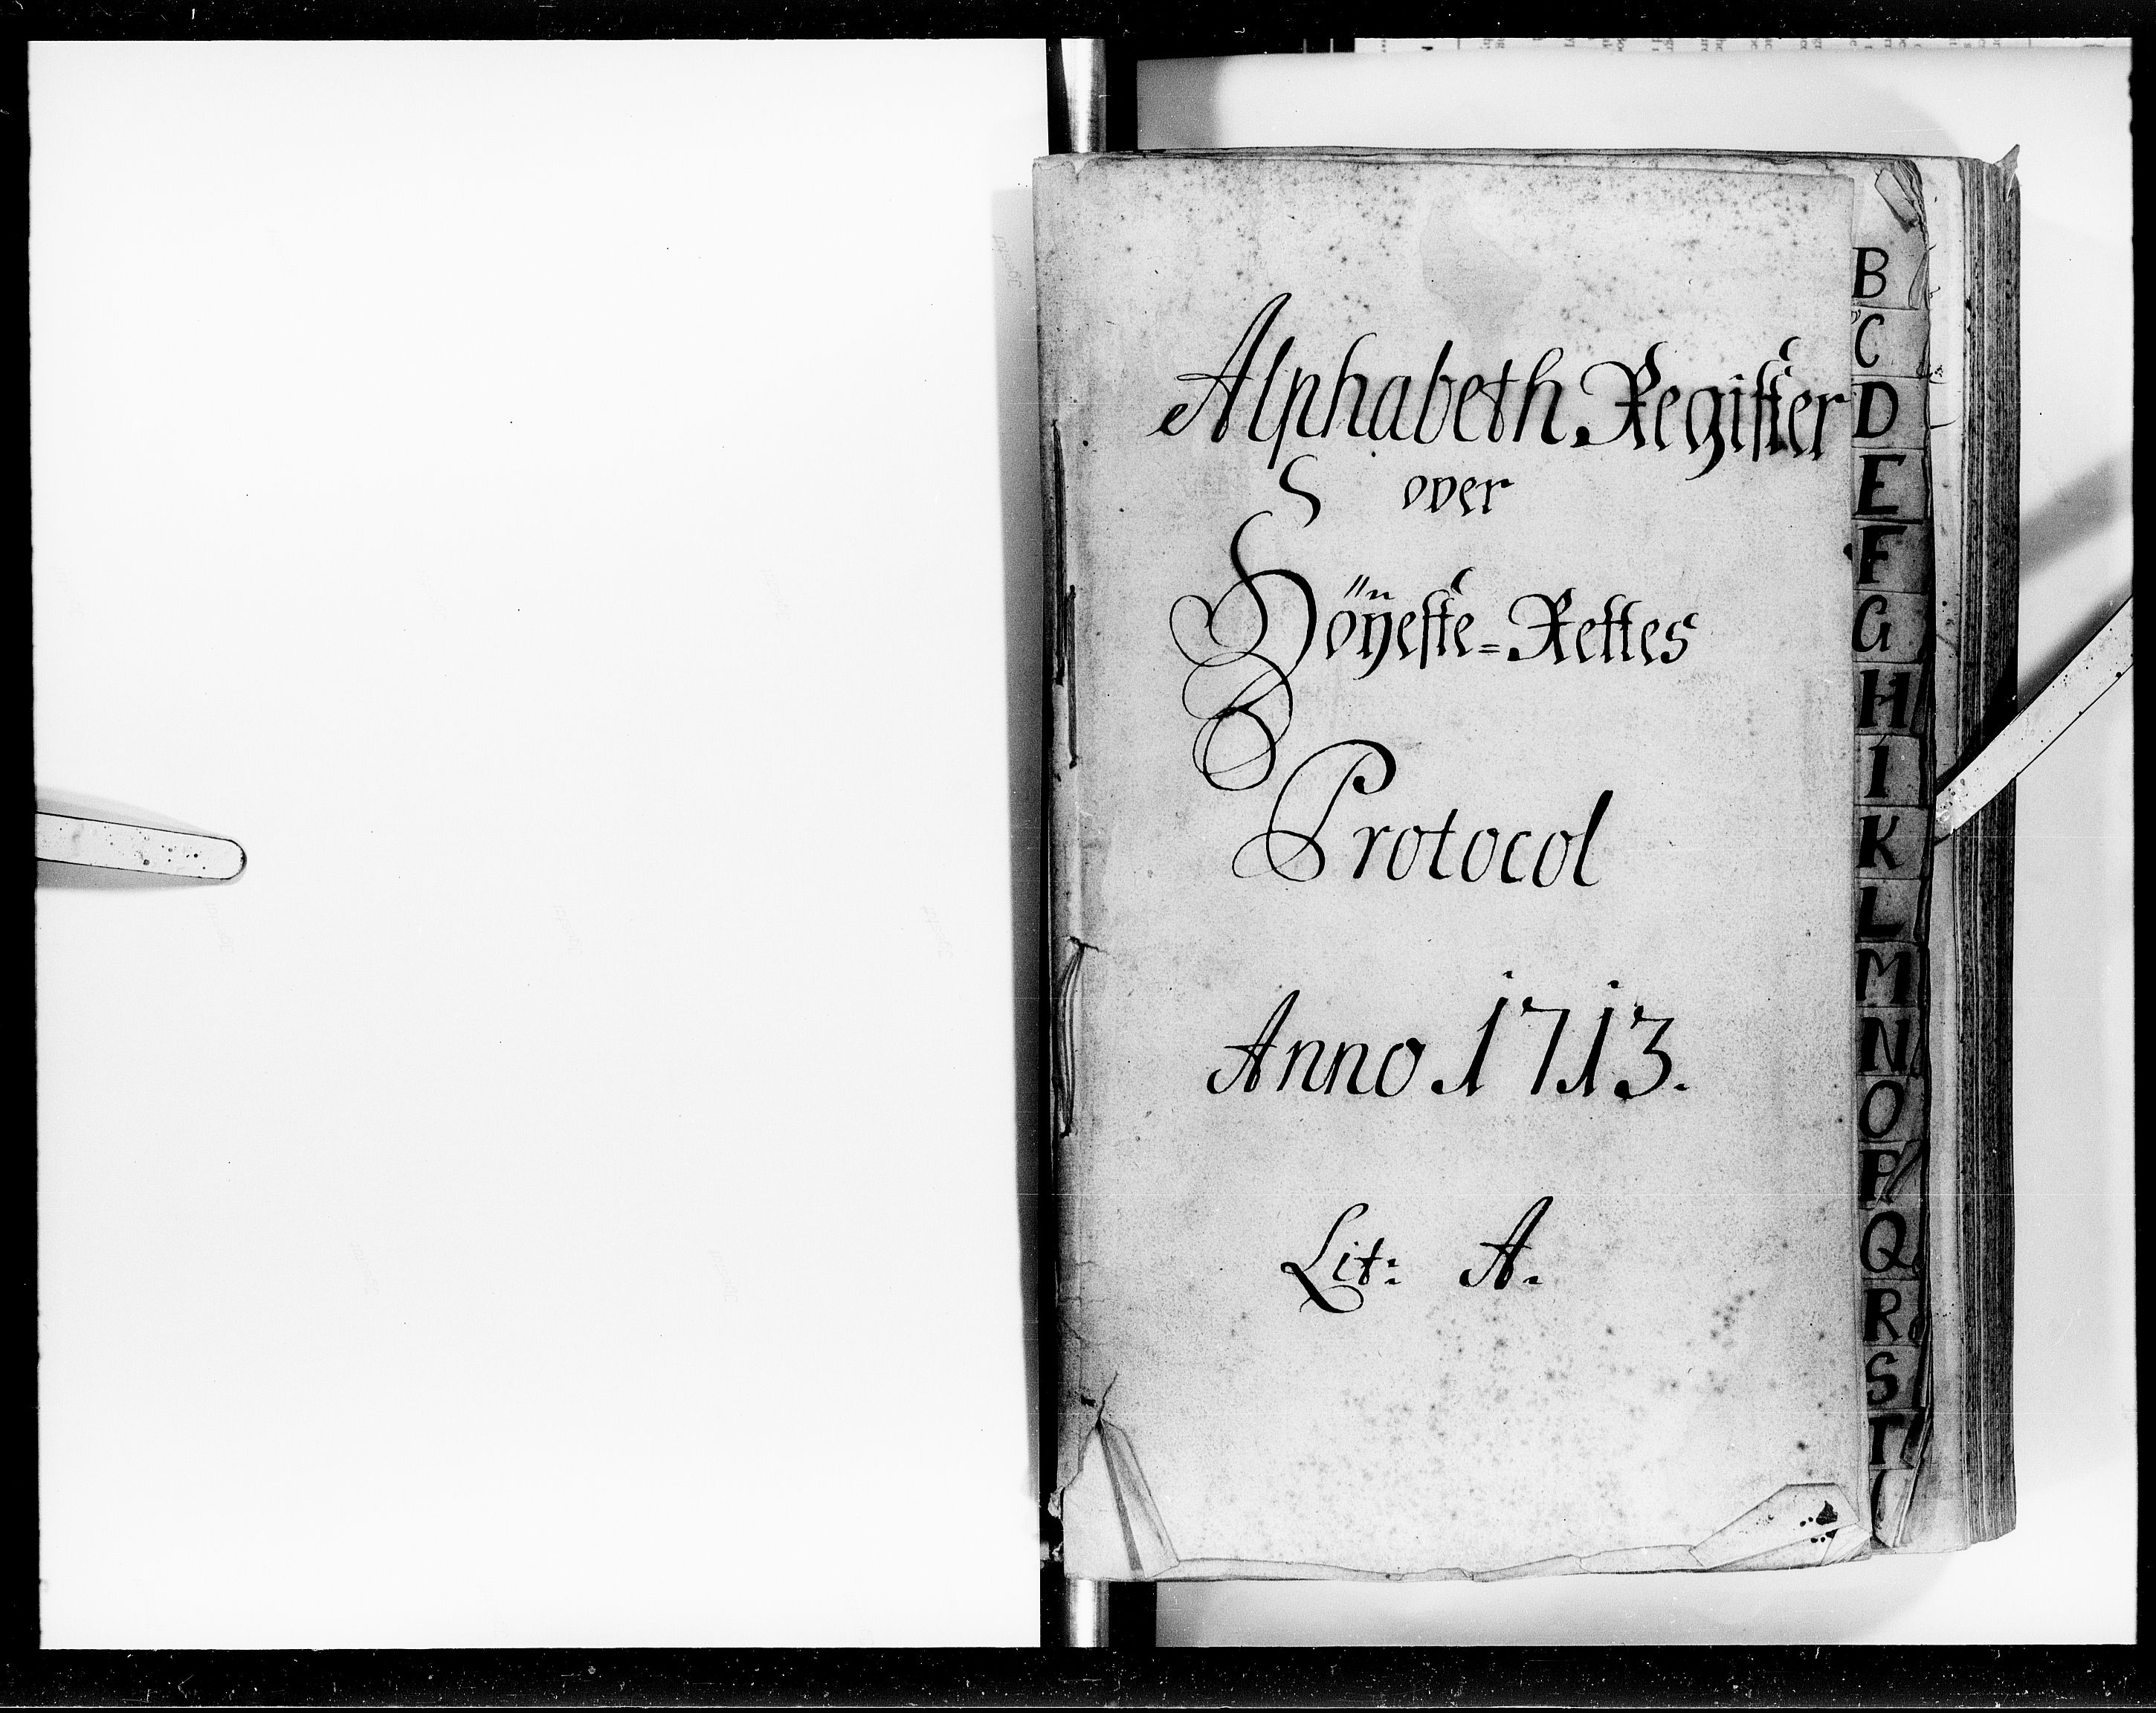 Alphabeth Register
over
Höÿeste=Rettes
Protocol
Anno 1713.
Lit: A.
B
C
D
E
F
G
H
I
K
L
M
N
O
P
Q
R
S
T